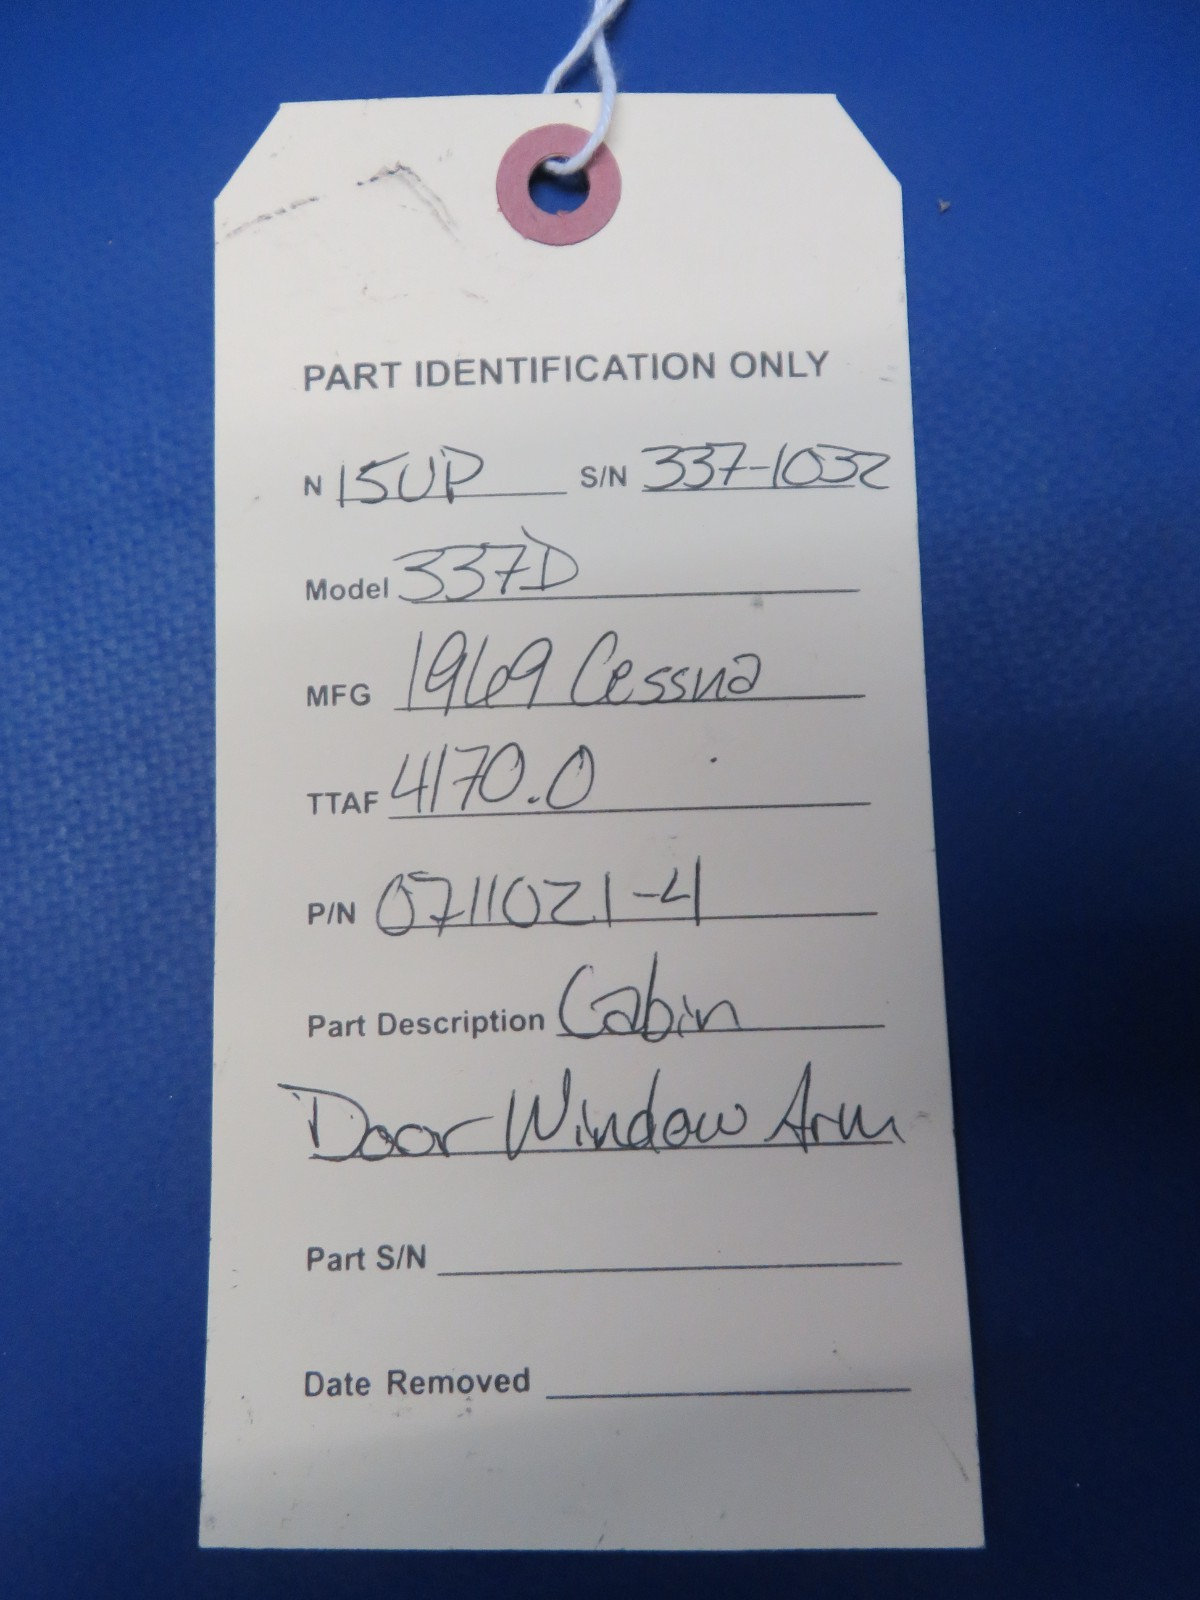 PART IDENTIFICATION ONLY
N 15UP S/N 337-1032
Model 337D
MFG 1969 Cessna
TTAF 4170.0
P/N 0711021-4
Part Description Cabin
Door Window Arm
Part S/N
Date Removed